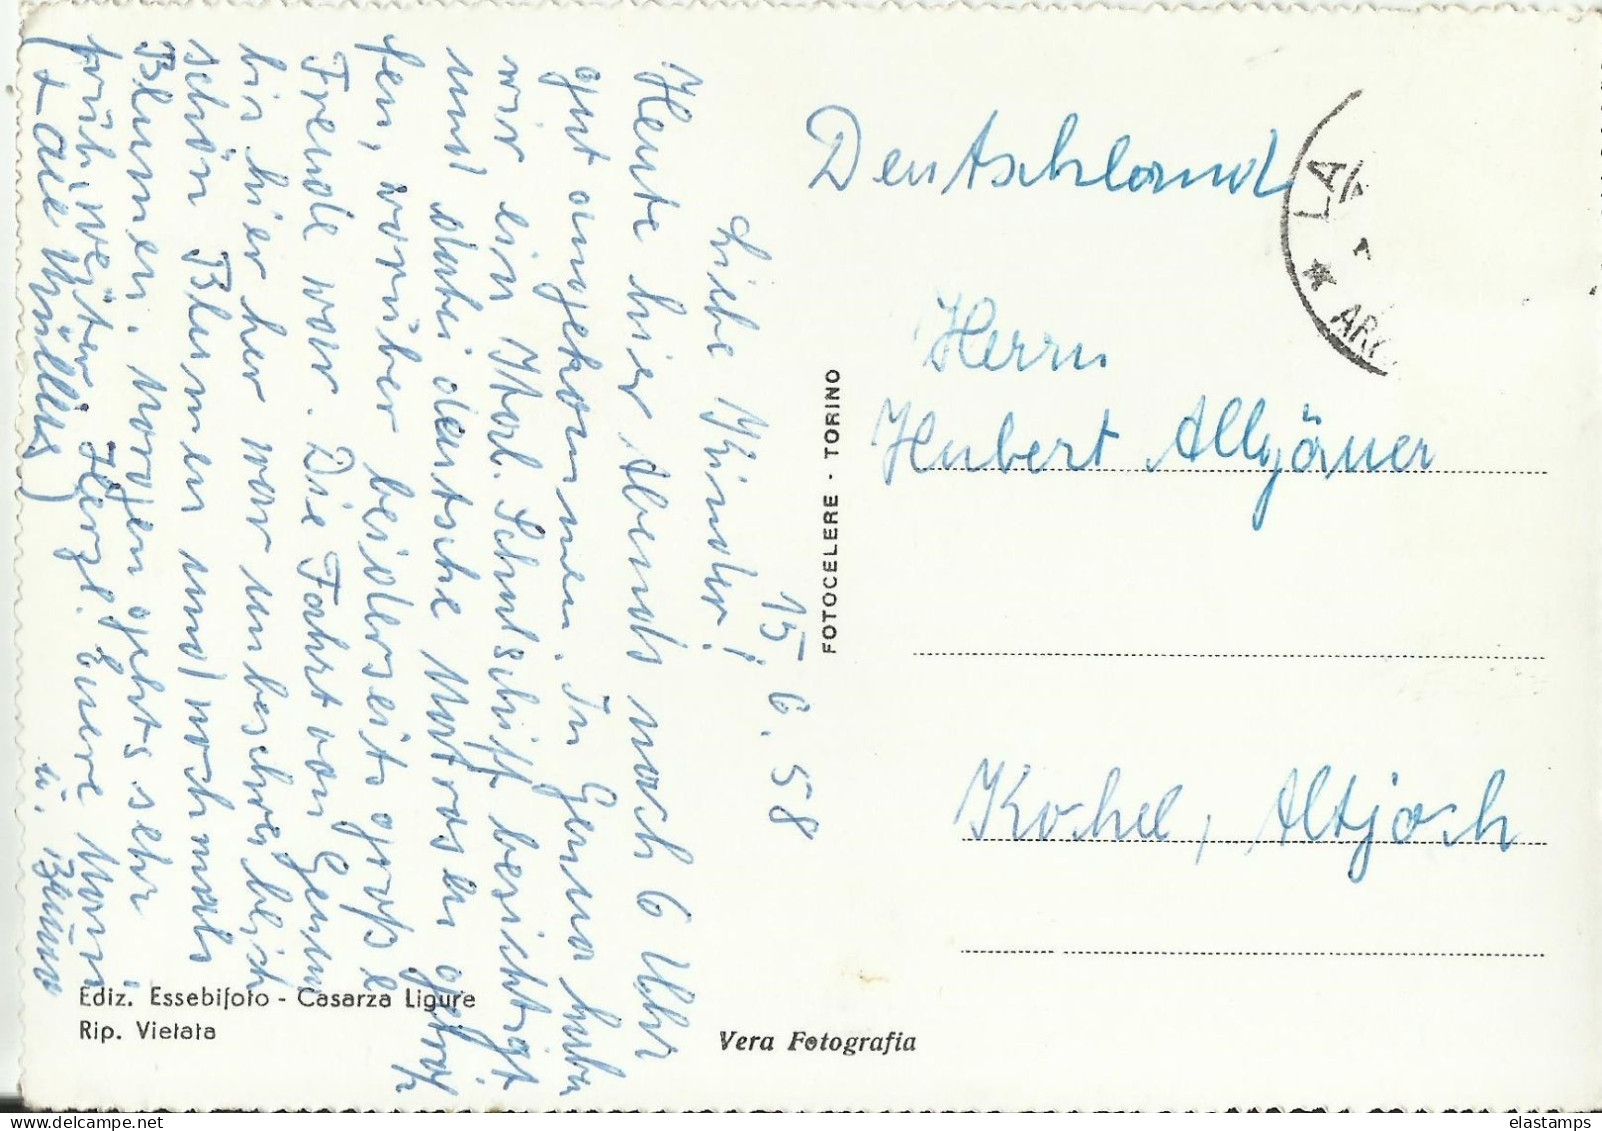 15. 6. 58
Liebe Kinder!
Heute hier Abends nach 6 Uhr
gut angekommen. In Genua haben
wir ein Ital. Schulschiff besichtigt
und dabei deutsche Matrosen getrof
fen, worüber beiderseits große
Freude war. Die Fahrt von Genua
bis hierher war unbeschreiblich
schön Blumen und nochmals
Blumen. Morgen gehts sehr
früh weiter. Herzl. Euere Mami
(+ alle Müllers) u. Benno
Deutschland
Herrn
Hubert Allgäuer
Kochel, Altjoch
LA
ARR
FOTOCELERE - TORINO
Ediz. Essebifoto - Casarza Ligure
Rip. Vietata
Vera Fotografia
elastamps